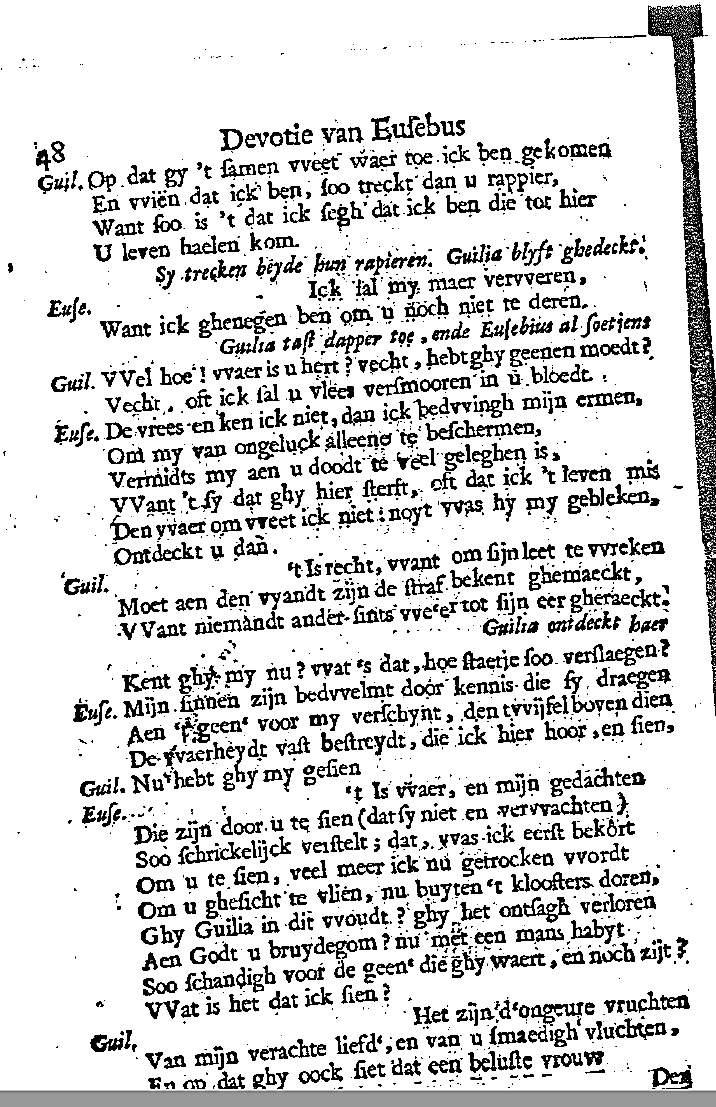 48
Devotie van Euſebus
Guil. Op dat gy 't ſamen vveet waer toe ick ben gekomen
En vvien dat ick ben, ſoo treckt dan u rappier,
Want ſoo is 't dat ick ſegh dat ick ben die tot hier
U leven haelen kom.
Sy trecken beyde hun rapieren. Guilia blyft ghedeckt.
Euſe. Ick ſal my maer vervveren,
Want ick ghenegen ben om u noch niet te deren.
Guilia taſt dapper toe, ende Euſebius al ſoetjens
Guil. VVel hoe! vvaer is u hert? vecht, hebt ghy geenen moedt?
Vecht, oft ick ſal u vlees verſmooren in u bloedt.
Euſe. De vrees en ken ick niet, dan ick bedvvingh mijn ermen,
Om my van ongeluck alleene te beſchermen,
Vermidts my aen u doodt te veel geleghen is,
VVant 't ſy dat ghy hier ſterft, oft dat ick 't leven mis
Den vvaer om vveet ick niet: noyt vvas hy my gebleken,
Ontdeckt u dan.
Guil. 't Is recht, vvant om ſijn leet te vvreken
Moet aen den vyandt zijn de ſtraf bekent ghemaeckt,
VVant niemandt ander-ſints vve'er tot ſijn eer gheraeckt.
Guilia ontdeckt haer
Kent ghy my nu? vvat 's dat, hoe ſtaetje ſoo verſlaegen?
Euſe. Mijn ſinnen zijn bedvvelmt door kennis die ſy draegen
Aen 't geen' voor my verſchynt, den tvvijfel boven dien
De vvaerheydt vaſt beſtreydt, die ick hier hoor, en ſien,
Guil. Nu hebt ghy my geſien
Euſe. 't Is vvaer, en mijn gedachten
Die zijn door u te ſien (dat ſy niet en vervvachten)
Soo ſchrickelijck verſtelt; dat, vvas ick eerſt bekort
Om u te ſien, veel meer ick nu getrocken vvordt
Om u gheſicht te vlien, nu buyten 't klooſters doren,
Ghy Guilia in dit vvoudt? ghy het ontſagh verloren
Aen Godt u bruydegom? nu met een mans habyt
Soo ſchandigh voor de geen' die ghy waert, en noch zijt?
VVat is het dat ick ſien?
Guil. Het zijn d'ongeure vruchten
Van mijn verachte liefd', en van u ſmaedigh vluchten,
En op dat ghy oock ſiet dat een beluſte vrouw